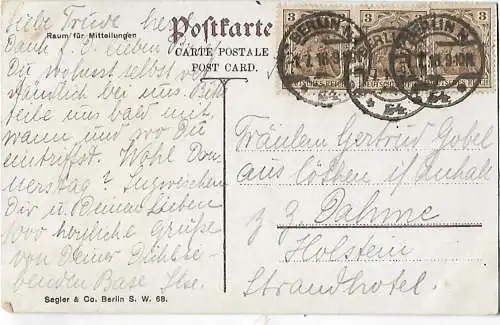 Liebe Trude, herzl.
Dank f. D. lieben
Raum für Mitteilungen
Du wohnst selbstver-
ständlich bei uns. Bitte
teile uns bald mit
wann und wo Du
eintriffst. Wohl Don-
nerstag? Inzwischen
Dir u. Deinen Lieben
1000 herzliche Grüße
von Deiner Dich lie-
benden Base Ilse.
Segler & Co. Berlin S. W. 68.
Postkarte
CARTE POSTALE
POST CARD.
3 3 3
DEUTSCHES REICH
BERLIN
Fräulein Gertrud Gobel
aus Cöthen i/ Anhalt
z. Z. Dahme
Holstein
Strandhotel.